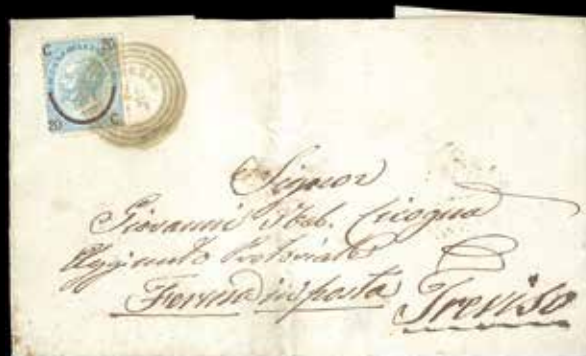 C 20
20 C
Signor
Giovanni Nob. Cicogna
Aggiunto Pretoriale
Ferma in posta Treviso